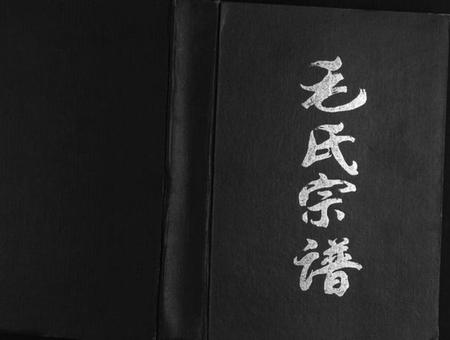 毛氏宗谱